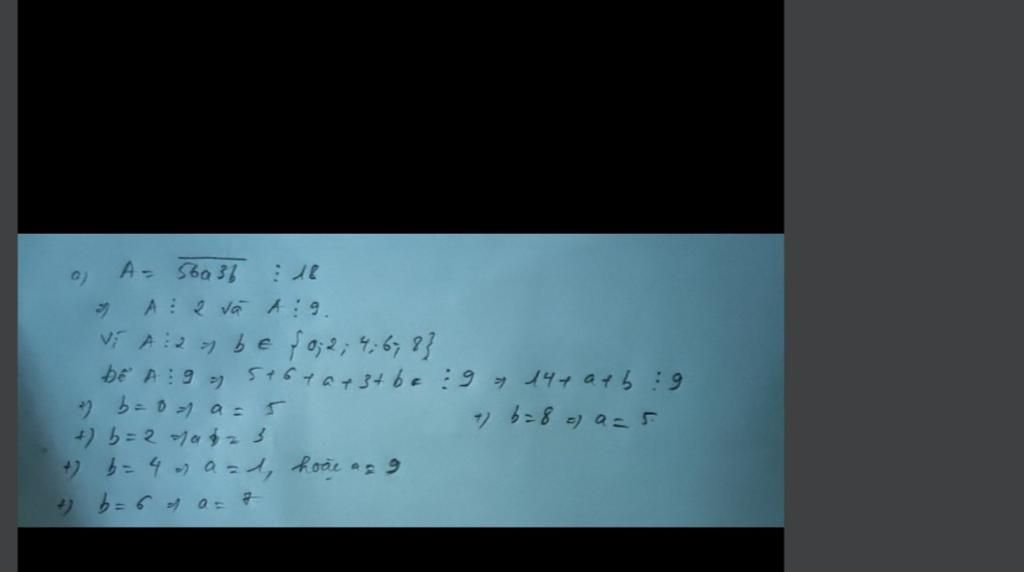 a) A = 56a3b ⋮ 18
=> A ⋮ 2 và A ⋮ 9.
Vì A ⋮ 2 => b ∈ {0; 2; 4; 6; 8}
Để A ⋮ 9 => 5 + 6 + a + 3 + b ⋮ 9 => 14 + a + b ⋮ 9
+) b = 0 => a = 5
+) b = 8 => a = 5
+) b = 2 => a = 3
+) b = 4 => a = 1, hoặc a = 9
+) b = 6 => a = 7